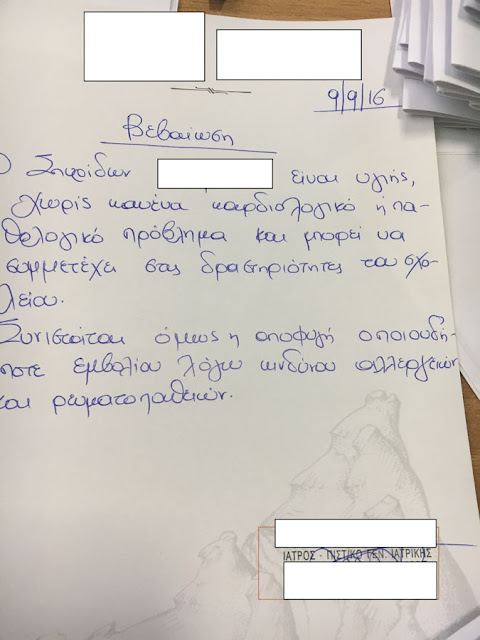 9/9/16
Βεβαίωση
Ο Σπυρίδων είναι υγιής,
χωρίς κανένα καρδιολογικό ή πα-
θολογικό πρόβλημα και μπορεί να
συμμετέχει στις δραστηριότητες του σχο-
λείου.
Συνιστάται όμως η αποφυγή οποιουδή-
ποτε εμβολίου λόγω κινδύνου αλλεργειών
και ρευματοπαθειών.
ΙΑΤΡΟΣ - ΠΙΣΤΙΚΟ ΓΕΝ. ΙΑΤΡΙΚΗΣ